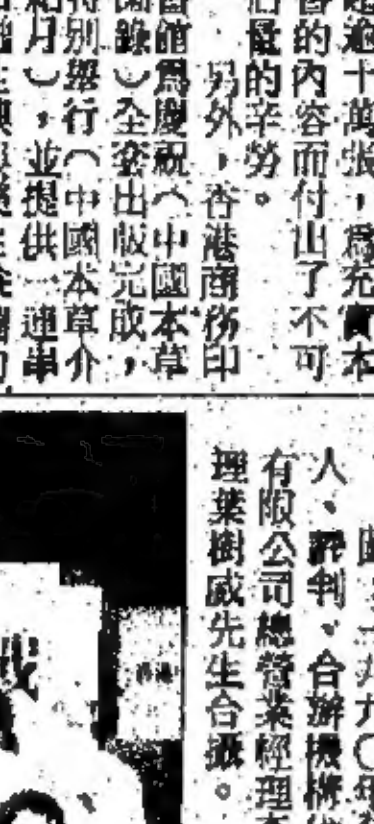 超過十萬張，爲充實本
的內容而付出了不可
估量的辛勞。
另外，香港商務印
書館爲慶祝︵中國本草
圖錄︶全套出版完成，
特别舉行︵中國本草介
紹月︶，並提供一連串
圖：一九九〇年
人、評判、合辦機構
有限公司總營業經理
理葉樹威先生合攝。